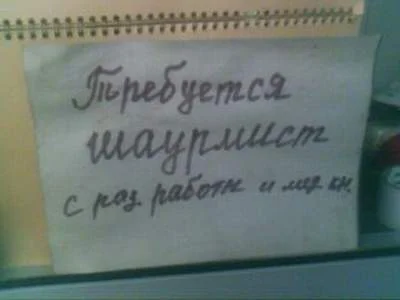 Требуется
шаурмист
с раз. работы и мед. кн.